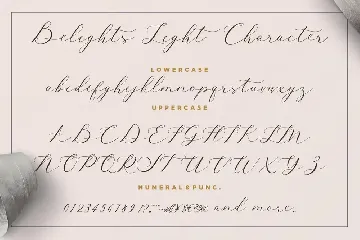 Delights Light Character
LOWERCASE
abcdefghijklmnopqrstuvwxyz
UPPERCASE
ABCDEFGHIJKLM
NOPQRSTUVWXYZ
NUMERAL&PUNC.
0123456789 and more.